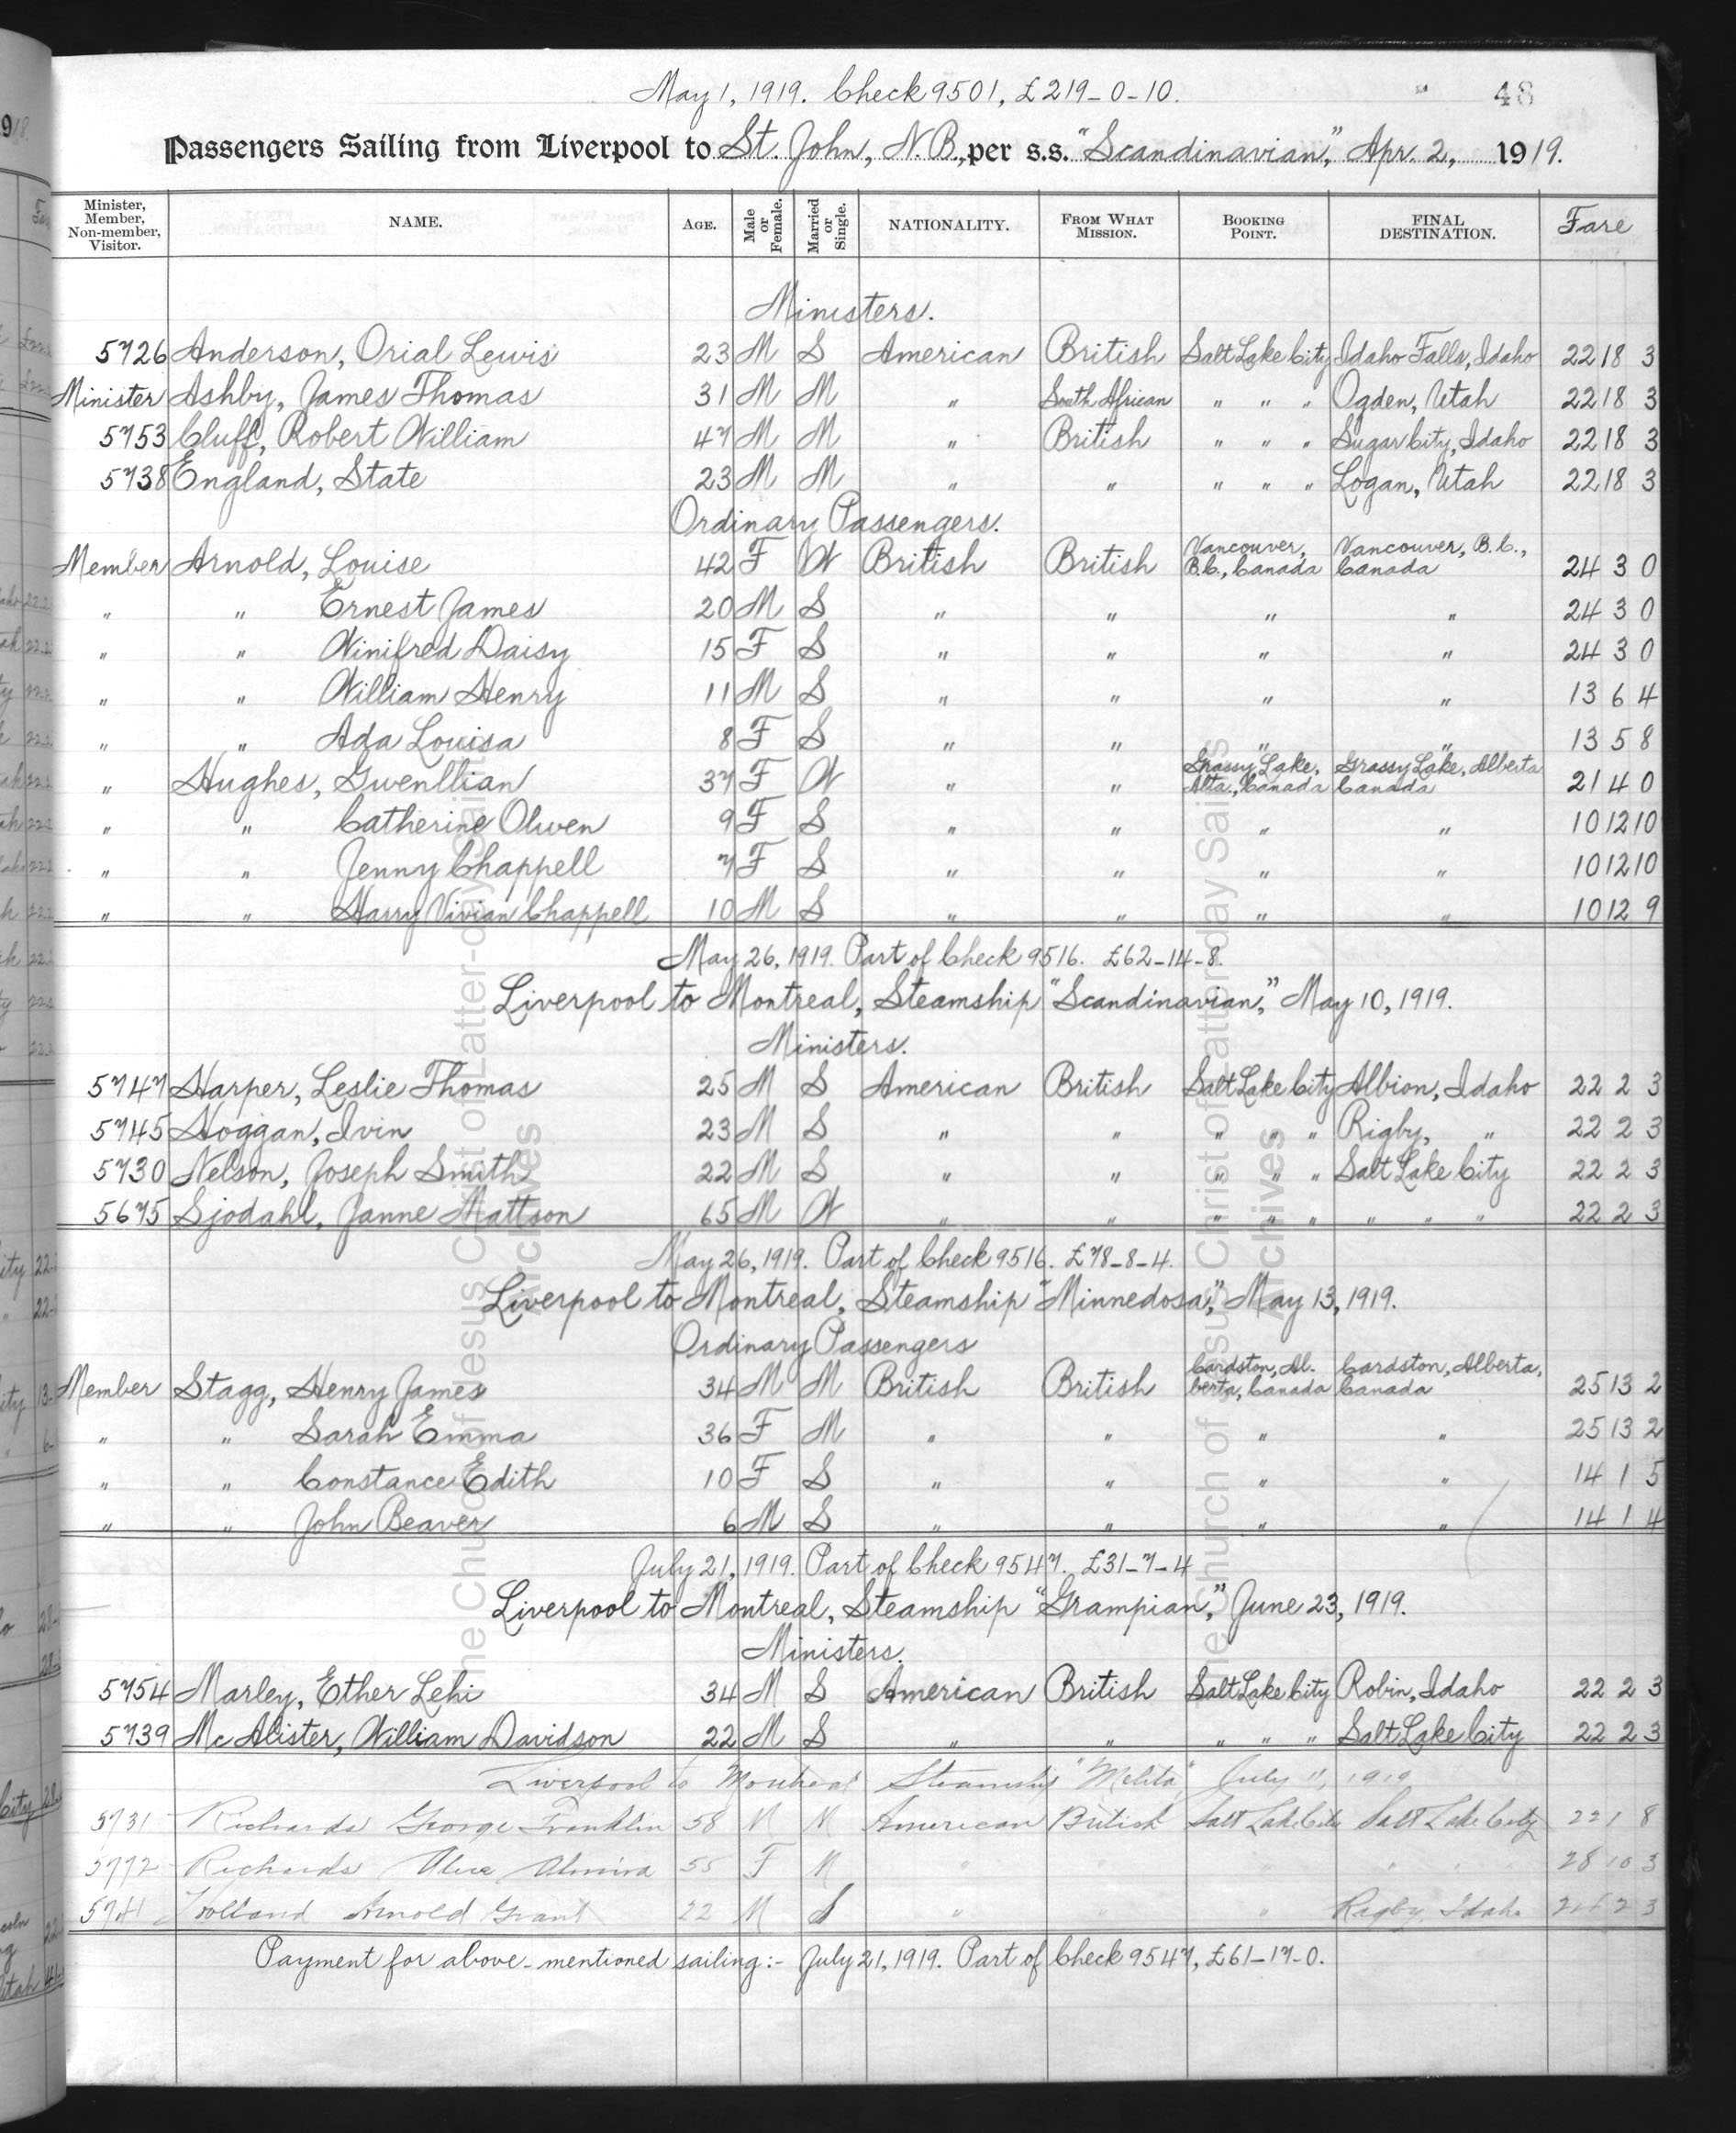 May 1, 1919. Check 9501, £219-0-10.
48
Passengers Sailing from Liverpool to St. John, N.B., per s.s. "Scandinavian," Apr. 2, 1919.
Minister, Member, Non-member, Visitor. NAME. AGE. Male or Female. Married or Single. NATIONALITY. FROM WHAT MISSION. BOOKING POINT. FINAL DESTINATION. Fare
Ministers.
5726 Anderson, Orial Lewis 23 M S American British Salt Lake City Idaho Falls, Idaho 22 18 3
Minister Ashby, James Thomas 31 M M " South African " " " Ogden, Utah 22 18 3
5753 Cluff, Robert William 47 M M " British " " " Sugar City, Idaho 22 18 3
5738 England, State 23 M M " " " " " Logan, Utah 22 18 3
Ordinary Passengers.
Member Arnold, Louise 42 F W British British Vancouver, B.C., Canada Vancouver, B.C., Canada 24 3 0
" " Ernest James 20 M S " " " " 24 3 0
" " Winifred Daisy 15 F S " " " " 24 3 0
" " William Henry 11 M S " " " " 13 6 4
" " Ada Louisa 8 F S " " " " 13 5 8
" Hughes, Gwenllian 37 F W " " Grassy Lake, Alta., Canada Grassy Lake, Alberta Canada 21 4 0
" " Catherine Olwen 9 F S " " " " 10 12 10
" " Jenny Chappell 7 F S " " " " 10 12 10
" " Harry Vivian Chappell 10 M S " " " " 10 12 9
May 26, 1919. Part of Check 9516. £62-14-8.
Liverpool to Montreal, Steamship "Scandinavian," May 10, 1919.
Ministers.
5747 Harper, Leslie Thomas 25 M S American British Salt Lake City Albion, Idaho 22 2 3
5745 Hoggan, Ivin 23 M S " " " " " Rigby, " 22 2 3
5730 Nelson, Joseph Smith 22 M S " " " " " Salt Lake City 22 2 3
5675 Sjodahl, Janne Mattson 65 M W " " " " " " " " 22 2 3
May 26, 1919. Part of Check 9516. £78-8-4.
Liverpool to Montreal, Steamship "Minnedosa," May 13, 1919.
Ordinary Passengers
Member Stagg, Henry James 34 M M British British Cardston, Alberta, Canada Cardston, Alberta, Canada 25 13 2
" " Sarah Emma 36 F M " " " " 25 13 2
" " Constance Edith 10 F S " " " " 14 1 5
" " John Beaver 6 M S " " " " 14 1 4
July 21, 1919. Part of Check 9547. £31-7-4
Liverpool to Montreal, Steamship "Grampian," June 23, 1919.
Ministers.
5754 Marley, Ether Lehi 34 M S American British Salt Lake City Robin, Idaho 22 2 3
5739 McAlister, William Davidson 22 M S " " " " " Salt Lake City 22 2 3
Liverpool to Montreal Steamship "Melita," July 11, 1919
5731 Richards George Franklin 58 M M American British Salt Lake City Salt Lake City 22 1 8
5772 Richards Alice Almira 55 F M " 28 10 3
5741 Holland Arnold Grant 22 M S " " Rigby Idaho 2 3
Payment for above-mentioned sailing:- July 21, 1919. Part of Check 9547, £61-17-0.
The Church of Jesus Christ of Latter-day Saints
Archives
The Church of Jesus Christ of Latter-day Saints
Archives